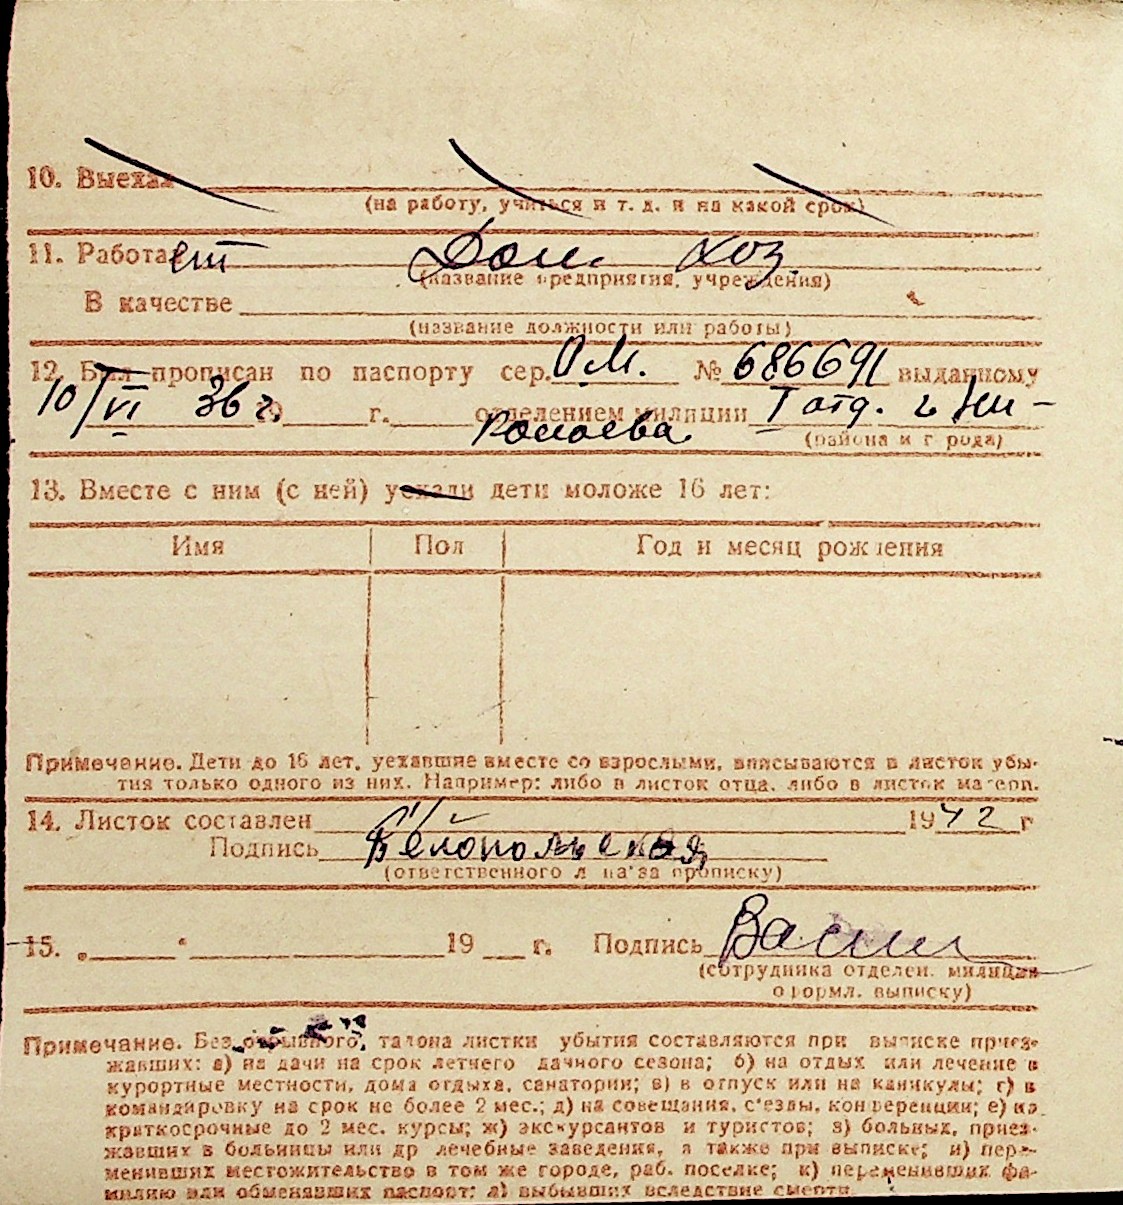 10. Выехал
(на работу, учиться и т. д. и на какой срок)
11. Работает Дом. Хоз.
(название предприятия, учреждения)
В качестве
(название должности или работы)
12. Был прописан по паспорту сер. О.М. № 686691 выданному
10/VI 36 г. 19 г. отделением милиции I отд. г. Ни-
колаева
(района и города)
13. Вместе с ним (с ней) уехали дети моложе 16 лет:
Имя Пол Год и месяц рождения
Примечание. Дети до 16 лет, уехавшие вместе со взрослыми, вписываются в листок убы-
тия только одного из них. Например: либо в листок отца, либо в листок матери.
14. Листок составлен 1942 г
Подпись Белопольская
(ответственного лица за прописку)
15. 19 г. Подпись
(сотрудника отделен. милиции
оформл. выписку)
Примечание. Без отрывного талона листки убытия составляются при выписке приез-
жавших: а) на дачи на срок летнего дачного сезона; б) на отдых или лечение в
курортные местности, дома отдыха, санатории; в) в отпуск или на каникулы; г) в
командировку на срок не более 2 мес.; д) на совещания, с'езды, конференции; е) на
краткосрочные до 2 мес. курсы; ж) экскурсантов и туристов; з) больных, приез-
жавших в больницы или др лечебные заведения, а также при выписке; и) пере-
менивших местожительство в том же городе, раб. поселке; к) переменивших фа-
милию или обменявших паспорт; л) выбывших вследствие смерти.